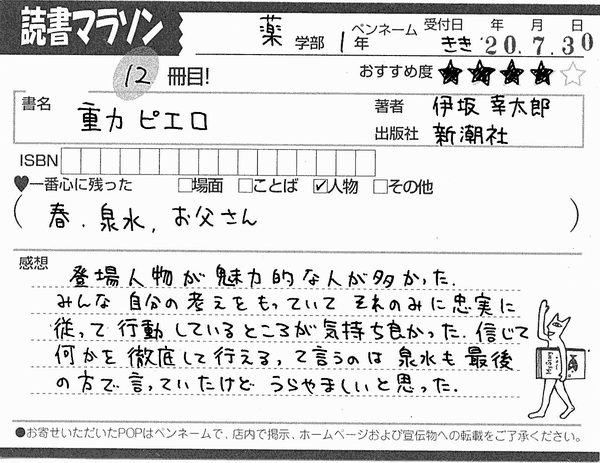 読書マラソン
薬 学部 1年
ペンネーム
きき
受付日 年 月 日
'20.7.30
12 冊目!
おすすめ度 ★★★★☆
書名 重力ピエロ
著者 伊坂 幸太郎
出版社 新潮社
ISBN
♥一番心に残った □場面 □ことば ☑人物 □その他
(春、泉水、お父さん)
感想
登場人物が魅力的な人が多かった。
みんな自分の考えをもっていて それのみに忠実に
従って行動しているところが気持ち良かった。信じて
何かを徹底して行える、って言うのは泉水も最後
の方で言っていたけど うらやましいと思った。
●お寄せいただいたPOPはペンネームで、店内で掲示、ホームページおよび宣伝物への転載をご了承ください。